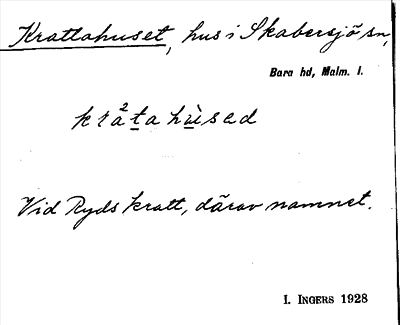 Krattahuset, hus i Skabersjö sn,
Bara hd, Malm. l.
krat²a hùsed
Vid Ryds kratt, därav namnet.
I. INGERS 1928